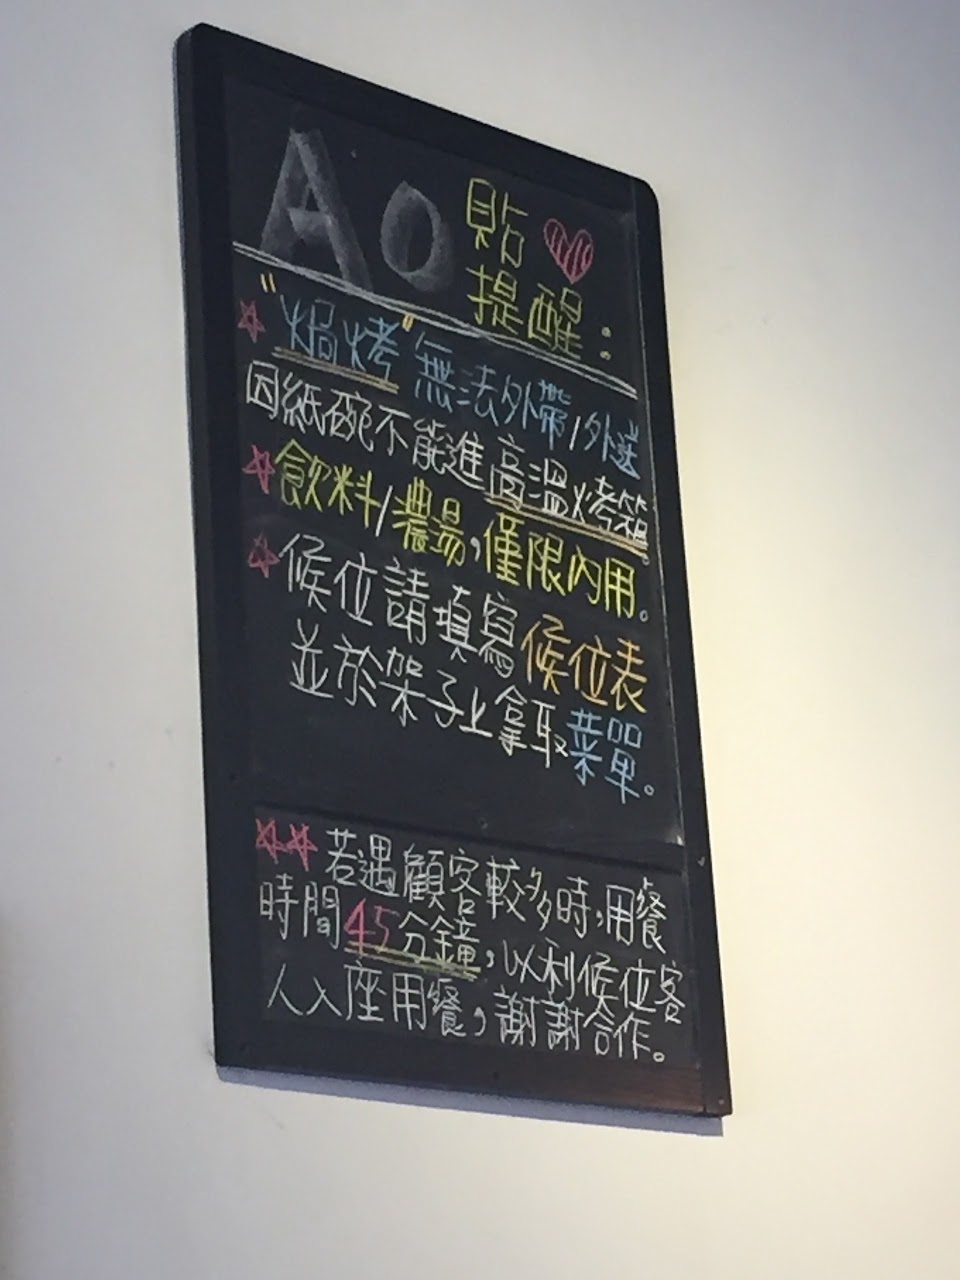 Ao 貼♡
提醒：
☆"焗烤"無法外帶/外送
因紙碗不能進高溫烤箱。
☆飲料/濃湯，僅限內用。
☆候位請填寫候位表
並於架子上拿取菜單。
☆☆若遇顧客較多時，用餐
時間45分鐘，以利候位客
人入座用餐，謝謝合作。